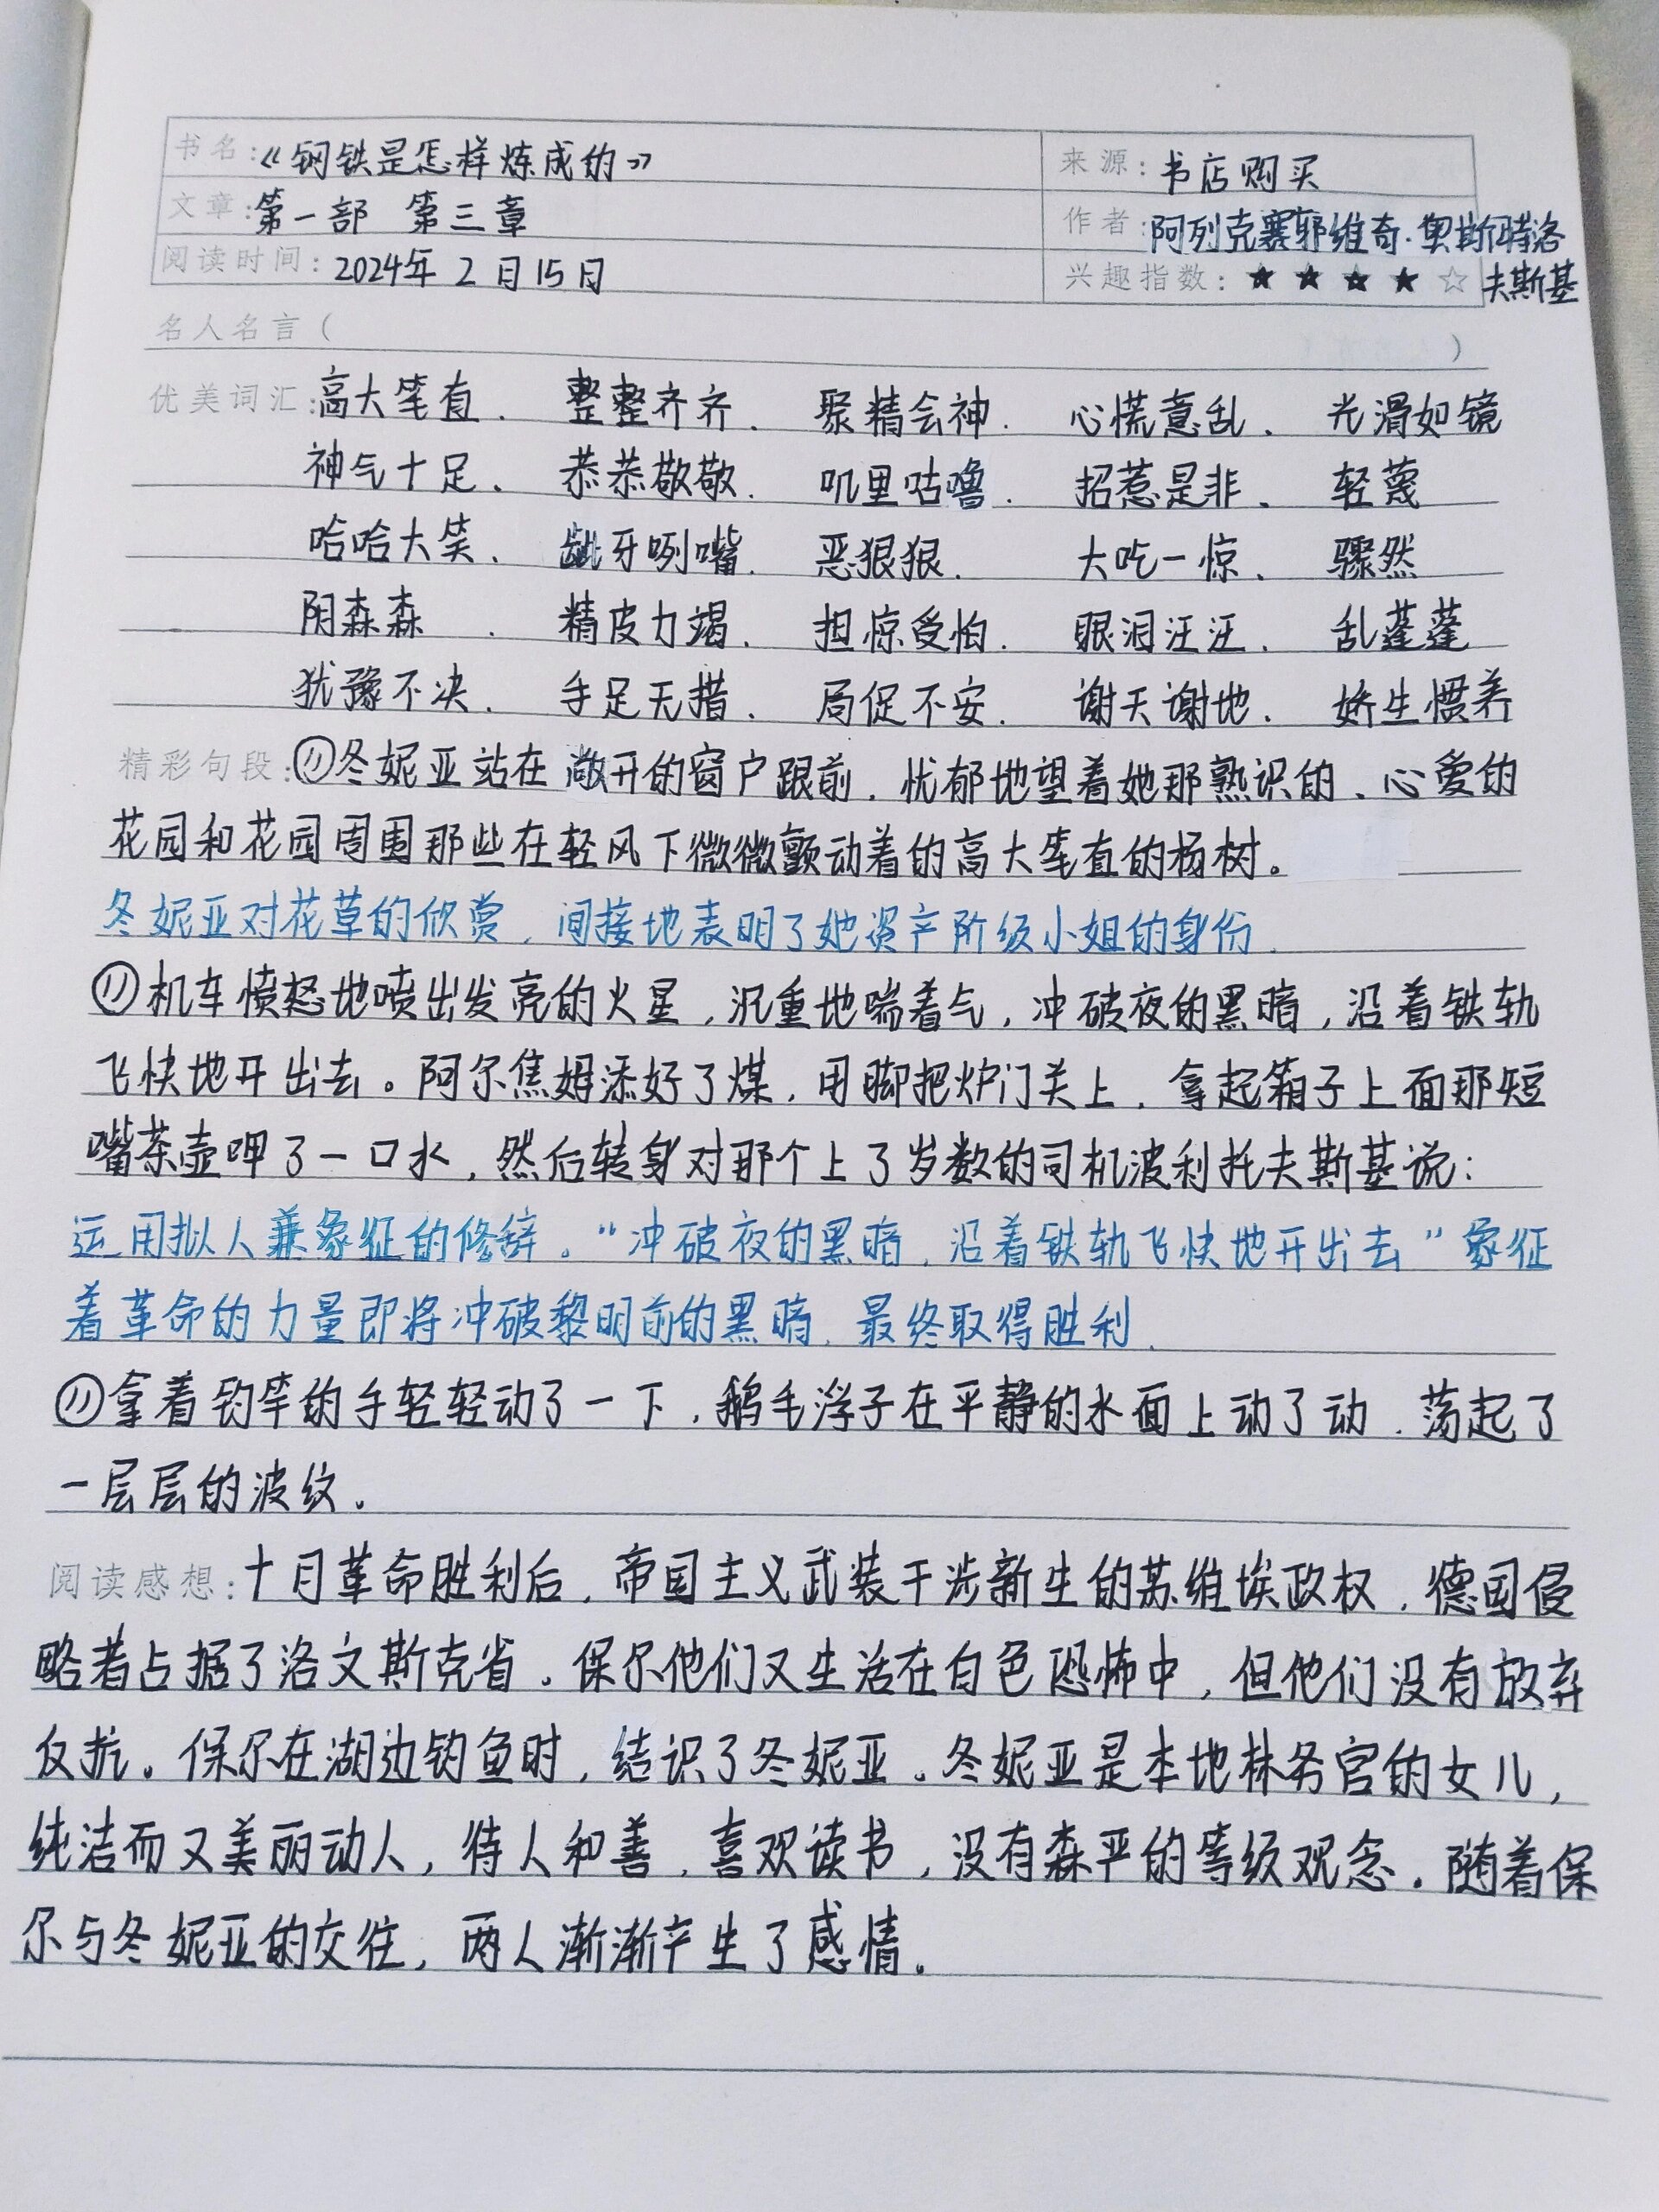 书名:《钢铁是怎样炼成的》 来源:书店购买
文章:第一部 第三章 作者:阿列克塞耶维奇·奥斯特洛
阅读时间:2024年2月15日 兴趣指数:★★★★☆夫斯基
名人名言( )
优美词汇:高大笔直、 整整齐齐、 聚精会神、 心慌意乱、 光滑如镜
神气十足、 恭恭敬敬、 叽里咕噜、 招惹是非、 轻蔑
哈哈大笑、 龇牙咧嘴、 恶狠狠、 大吃一惊、 骤然
阴森森、 精皮力竭、 担惊受怕、 眼泪汪汪、 乱蓬蓬
犹豫不决、 手足无措、 局促不安、 谢天谢地、 娇生惯养
精彩句段:冬妮亚站在敞开的窗户跟前,忧郁地望着她那熟识的、心爱的
花园和花园周围那些在轻风下微微颤动着的高大笔直的杨树。
冬妮亚对花草的欣赏,间接地表明了她资产阶级小姐的身份.
机车愤怒地喷出发亮的火星,沉重地喘着气,冲破夜的黑暗,沿着铁轨
飞快地开出去。阿尔焦姆添好了煤,用脚把炉门关上,拿起箱子上面那短
嘴茶壶呷了一口水,然后转身对那个上了岁数的司机波利托夫斯基说:
运用拟人兼象征的修辞。“冲破夜的黑暗,沿着铁轨飞快地开出去”象征
着革命的力量即将冲破黎明前的黑暗,最终取得胜利.
拿着钓竿的手轻轻动了一下,鹅毛浮子在平静的水面上动了动,荡起了
一层层的波纹。
阅读感想:十月革命胜利后,帝国主义武装干涉新生的苏维埃政权,德国侵
略者占据了洛文斯克省。保尔他们又生活在白色恐怖中,但他们没有放弃
反抗。保尔在湖边钓鱼时,结识了冬妮亚。冬妮亚是本地林务官的女儿,
纯洁而又美丽动人,待人和善,喜欢读书,没有森严的等级观念。随着保
尔与冬妮亚的交往,两人渐渐产生了感情。